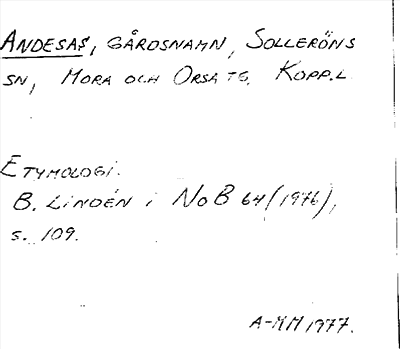 ANDESAS, GÅRDSNAMN, SOLLERÖNS
SN, MORA OCH ORSA TG. KOPP.L
ETYMOLOGI.
B. LINDÉN i NoB 64 (1976),
s. 109.
A-MM 1977.